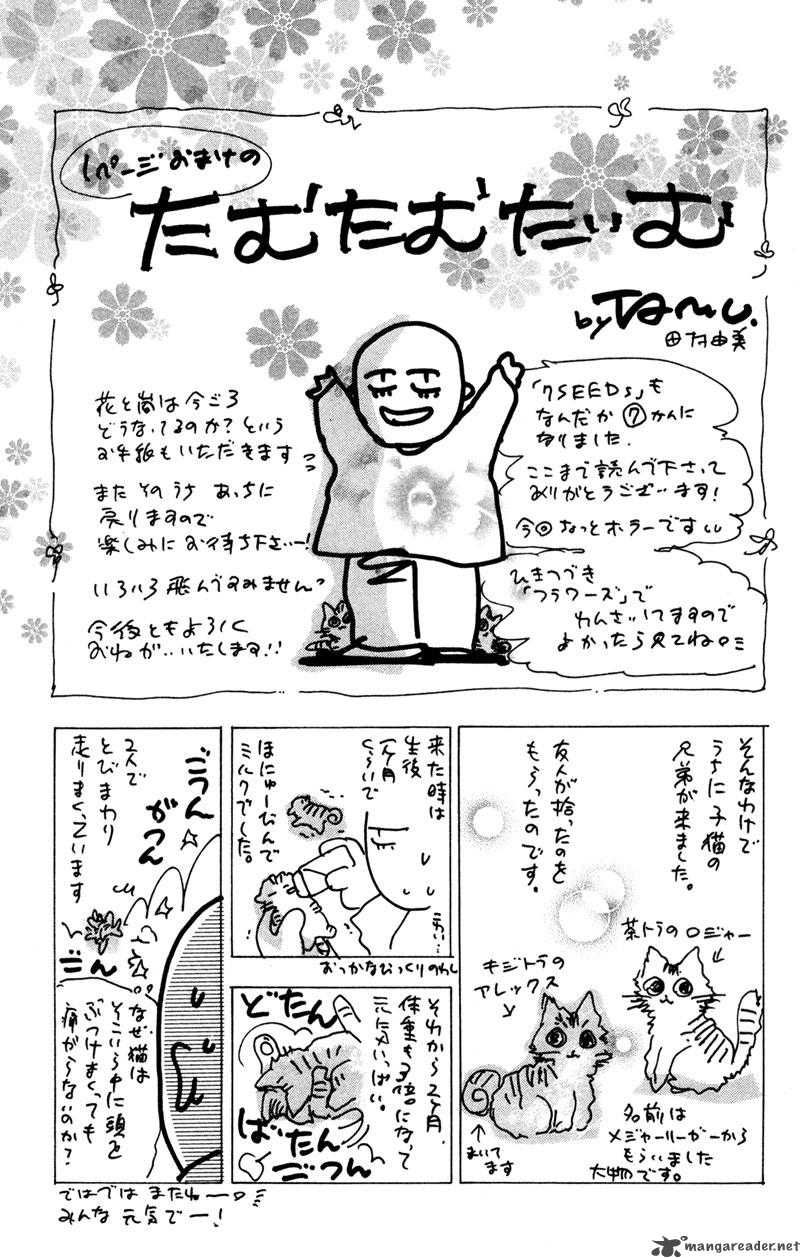 1ページおまけの
たむたむたいむ
by Tamu.
田村由美
「7SEEDS」も
なんだか⑦かんに
なりました.
ここまで読んで下さって
ありがとうございます!
今回なっとホラーです
ひきつづき
「フラワーズ」で
れんさいしてますので
よかったら見てね
花と嵐は今ごろ
どうなってるのか?という
お手紙もいただきます
またそのうち あっちに
戻りますので
楽しみにお待ち下さいー!
いろいろ飛んですみません
今後ともよろしく
おねがいいたします!!
そんなわけで
うちに子猫の
兄弟が来ました。
友人が拾ったのを
もらったのです。
茶トラのロジャー
キジトラの
アレックス
まいて
ます
名前は
メジャーリーガーから
もらいました
大物です。
来た時は
生後
1ヶ月
くらいで
ほにゅーびんで
ミルクでした。
おっかなびっくりのわし
それから2ヶ月、
体重も3倍になって
元気いっぱい。
どたん
ばたん
ごつん
ごうん
がつん
2人で
とびまわり
走りまくっています
ごん
なぜ猫は
そこいら中に頭を
ぶつけまくっても
痛がらないのか?
ではでは またねー
みんな 元気でー!
mangareader.net